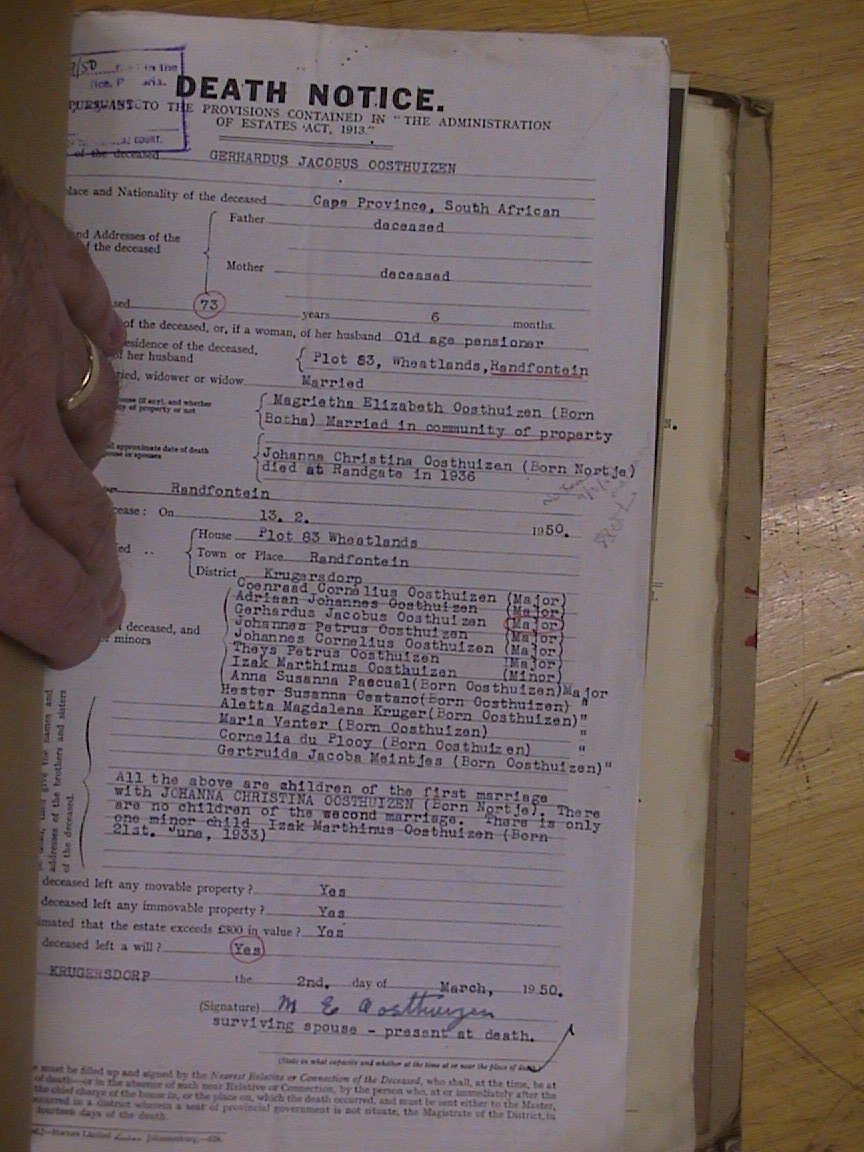 /50 in the
DEATH NOTICE.
PURSUANT TO THE PROVISIONS CONTAINED IN "THE ADMINISTRATION
OF ESTATES ACT, 1913."
COURT.
of the deceased GERHARDUS JACOBUS OOSTHUIZEN
lace and Nationality of the deceased Cape Province, South African
Father deceased
nd Addresses of the
of the deceased
Mother deceased
sed 73 years 6 months.
of the deceased, or, if a woman, of her husband Old age pensioner
esidence of the deceased,
of her husband Plot 83, Wheatlands, Randfontein
ried, widower or widow Married
pouse (if any), and whether
ity of property or not
Magrietha Elizabeth Oosthuizen (Born
Botha) Married in community of property
approximate date of death
pouse or spouses
Johanna Christina Oosthuizen (Born Nortje)
died at Randgate in 1936
Randfontein
cease: On 13. 2. 1950.
House Plot 83 Wheatlands
Town or Place Randfontein
District Krugersdorp
Coenraad Cornelius Oosthuizen (Major)
Adriaan Johannes Oosthuizen (Major)
Gerhardus Jacobus Oosthuizen (Major)
Johannes Petrus Oosthuizen (Major)
deceased, and
minors
Johannes Cornelius Oosthuizen (Major)
Theys Petrus Oosthuizen (Major)
Izak Marthinus Oosthuizen (Minor)
Anna Susanna Pascual(Born Oosthuizen)Major
Hester Susanna Castano(Born Oosthuizen) "
Aletta Magdalena Kruger(Born Oosthuizen)"
Maria Venter (Born Oosthuizen) "
Cornelia du Plooy (Born Oosthuizen) "
Gertruida Jacoba Meintjes (Born Oosthuizen)"
give the names and
addresses of the brothers and sisters
of the deceased.
All the above are children of the first marriage
with JOHANNA CHRISTINA OOSTHUIZEN (Born Nortje). There
are no children of the second marriage. There is only
one minor child Izak Marthinus Oosthuizen (Born
21st. June, 1933)
deceased left any movable property? Yes
deceased left any immovable property? Yes
imated that the estate exceeds £300 in value? Yes
deceased left a will? Yes
KRUGERSDORP the 2nd. day of March, 1950.
(Signature) M E Oosthuizen
surviving spouse - present at death.
(State in what capacity and whether at the time at or near the place of death)
e must be filled up and signed by the Nearest Relative or Connection of the Deceased, who shall, at the time, be at
of death—or in the absence of such near Relative or Connection, by the person who, at or immediately after the
the chief charge of the house in, or the place on, which the death occurred, and must be sent either to the Master,
occurred in a district wherein a seat of provincial government is not situate, the Magistrate of the District, in
fourteen days of the death.
Limited Johannesburg.
N.